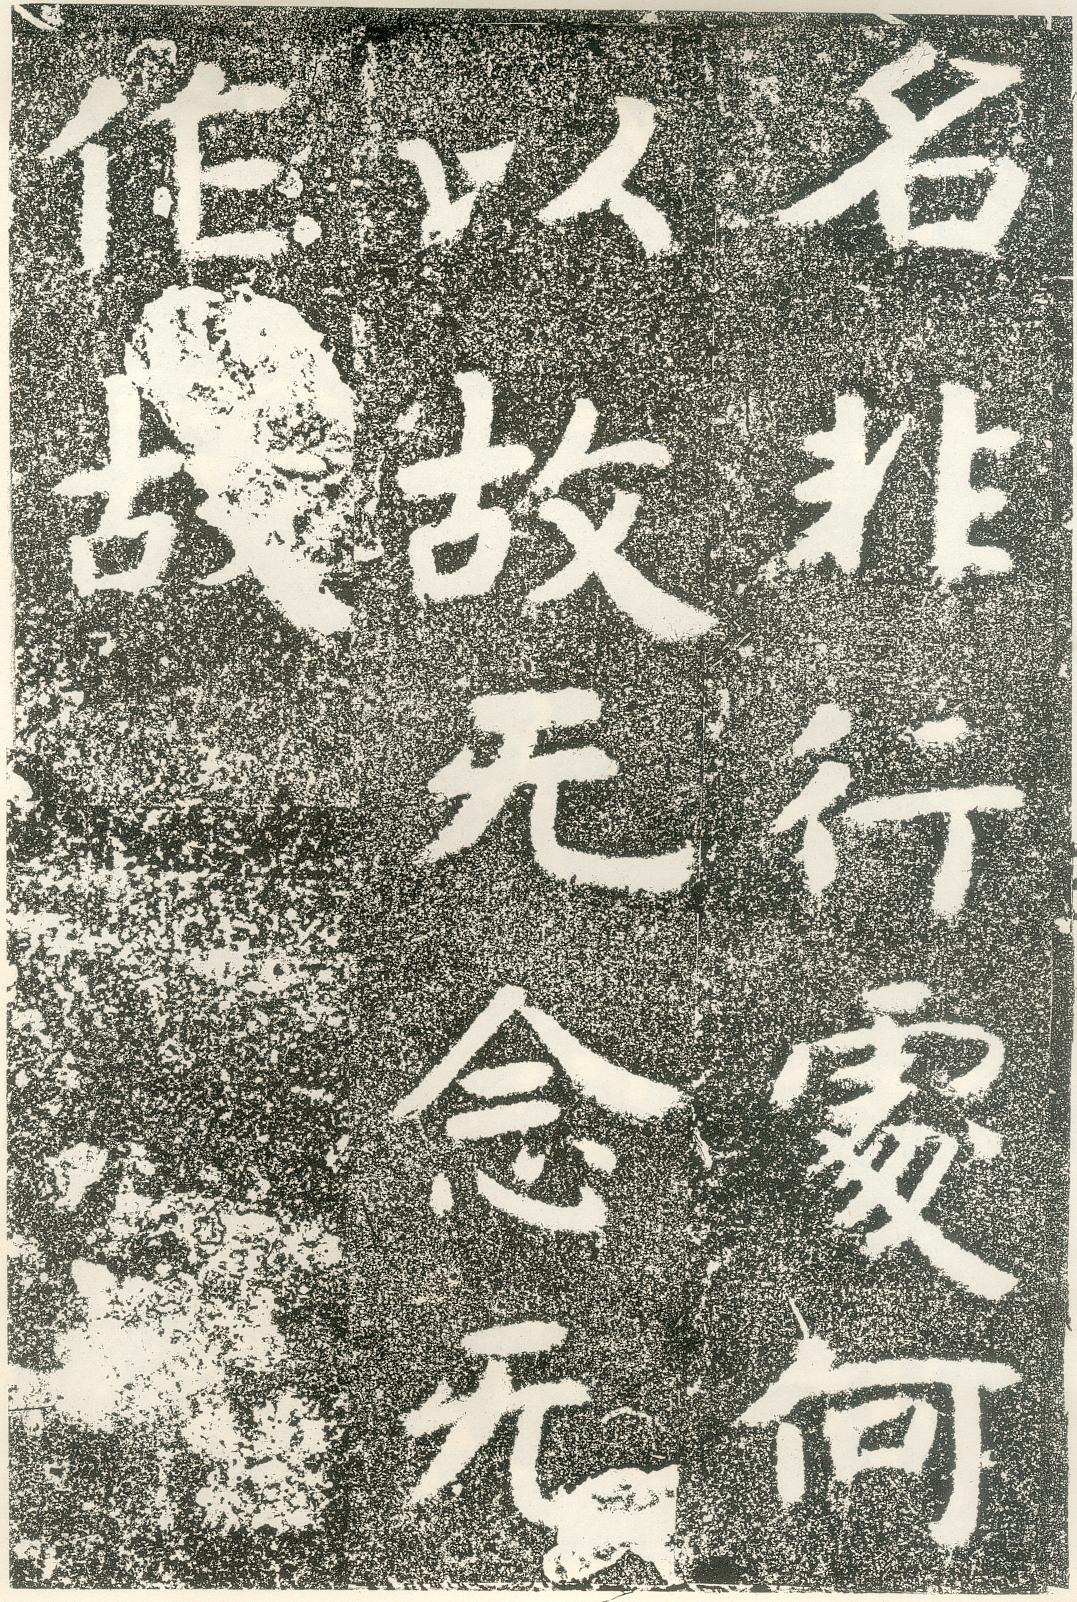 名非行處何
以故无念无
作故